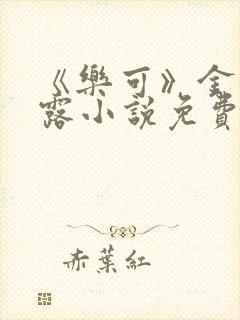 《樂可》金
露小説免費
赤葉紅